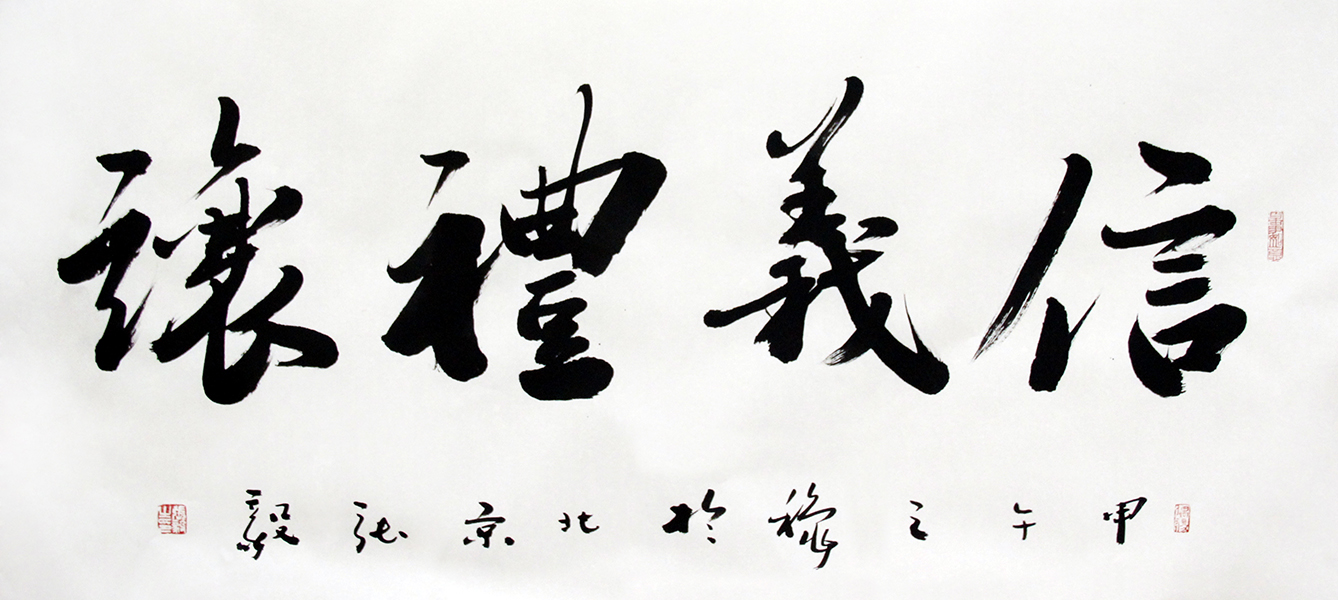 信義禮讓
甲午之秋於北京張毅